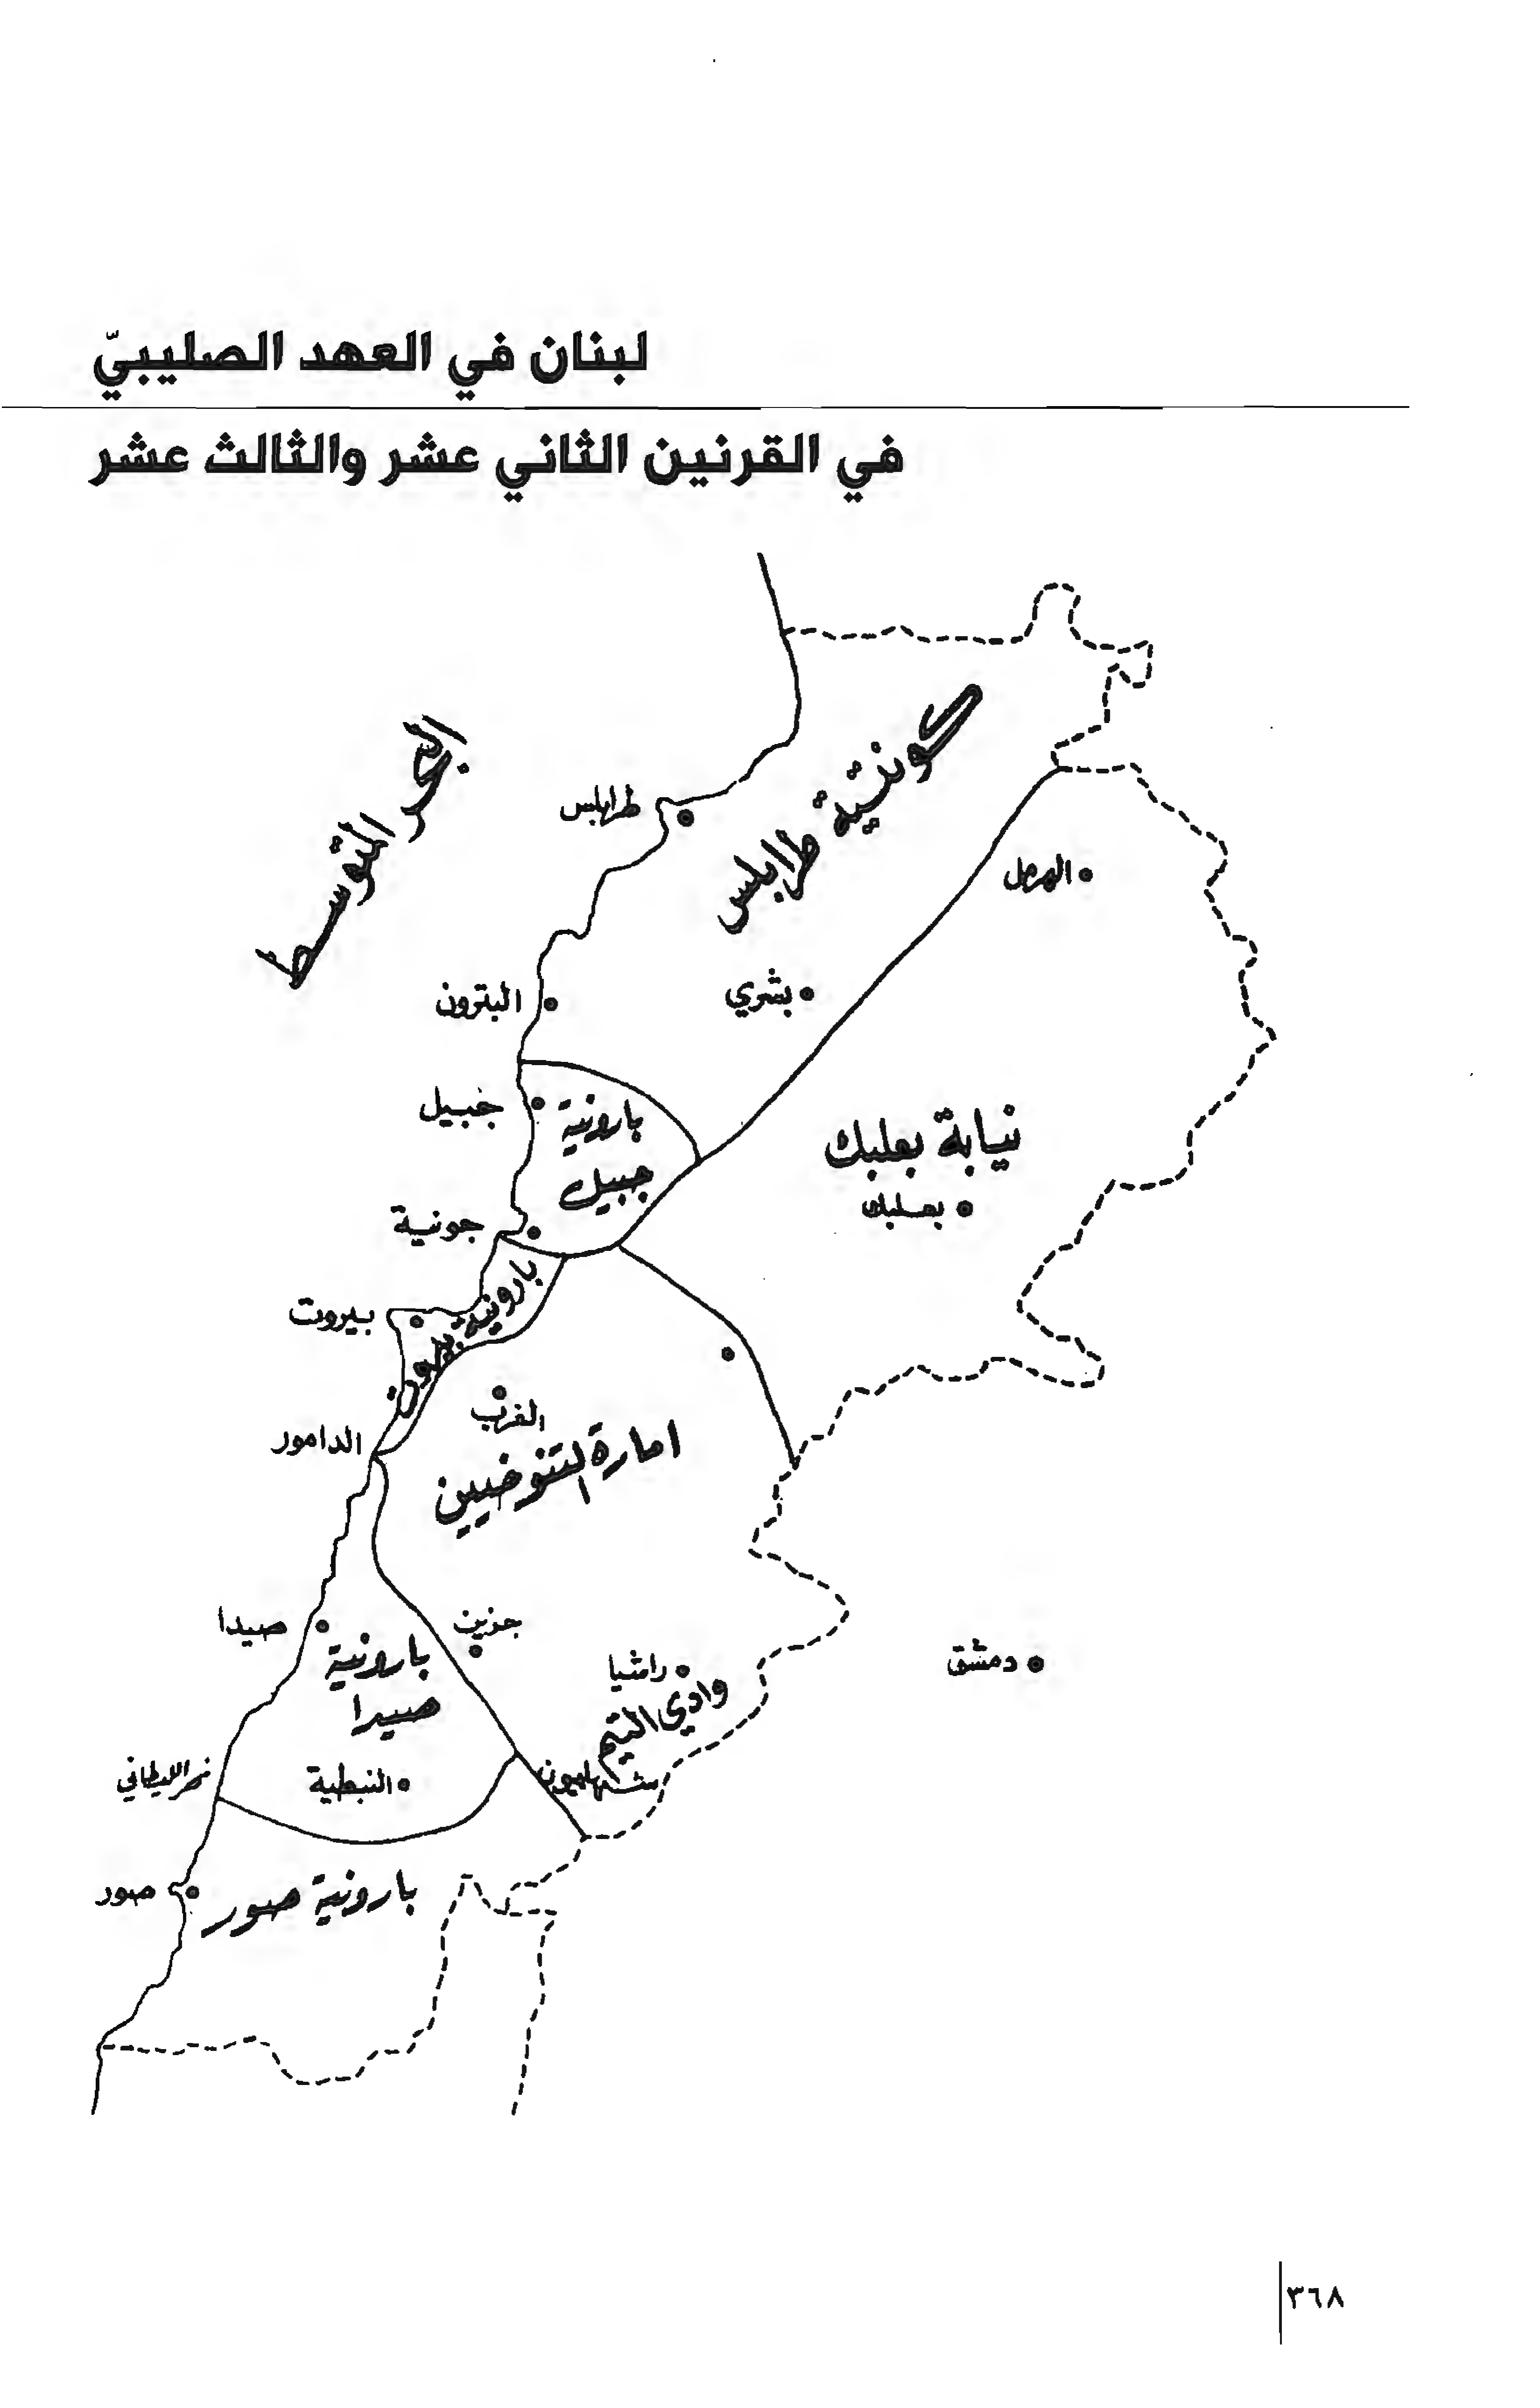 لبنان في العهد الصليبيّ
في القرنين الثاني عشر والثالث عشر
البحر المتوسط
كونتية طرابلس
طرابلس
الهرمل
البترون
بشري
جبيل
بارونية
جبيل
نيابة بعلبك
بعلبك
جونية
بارونية بيروت
بيروت
الغرب
الدامور
امارة التنوخيين
صيدا
جزين
بارونية
صيدا
راشيا
وادي التيم
دمشق
نهر الليطاني
النبطية
شهابيون
صور
بارونية صور
٣٦٨